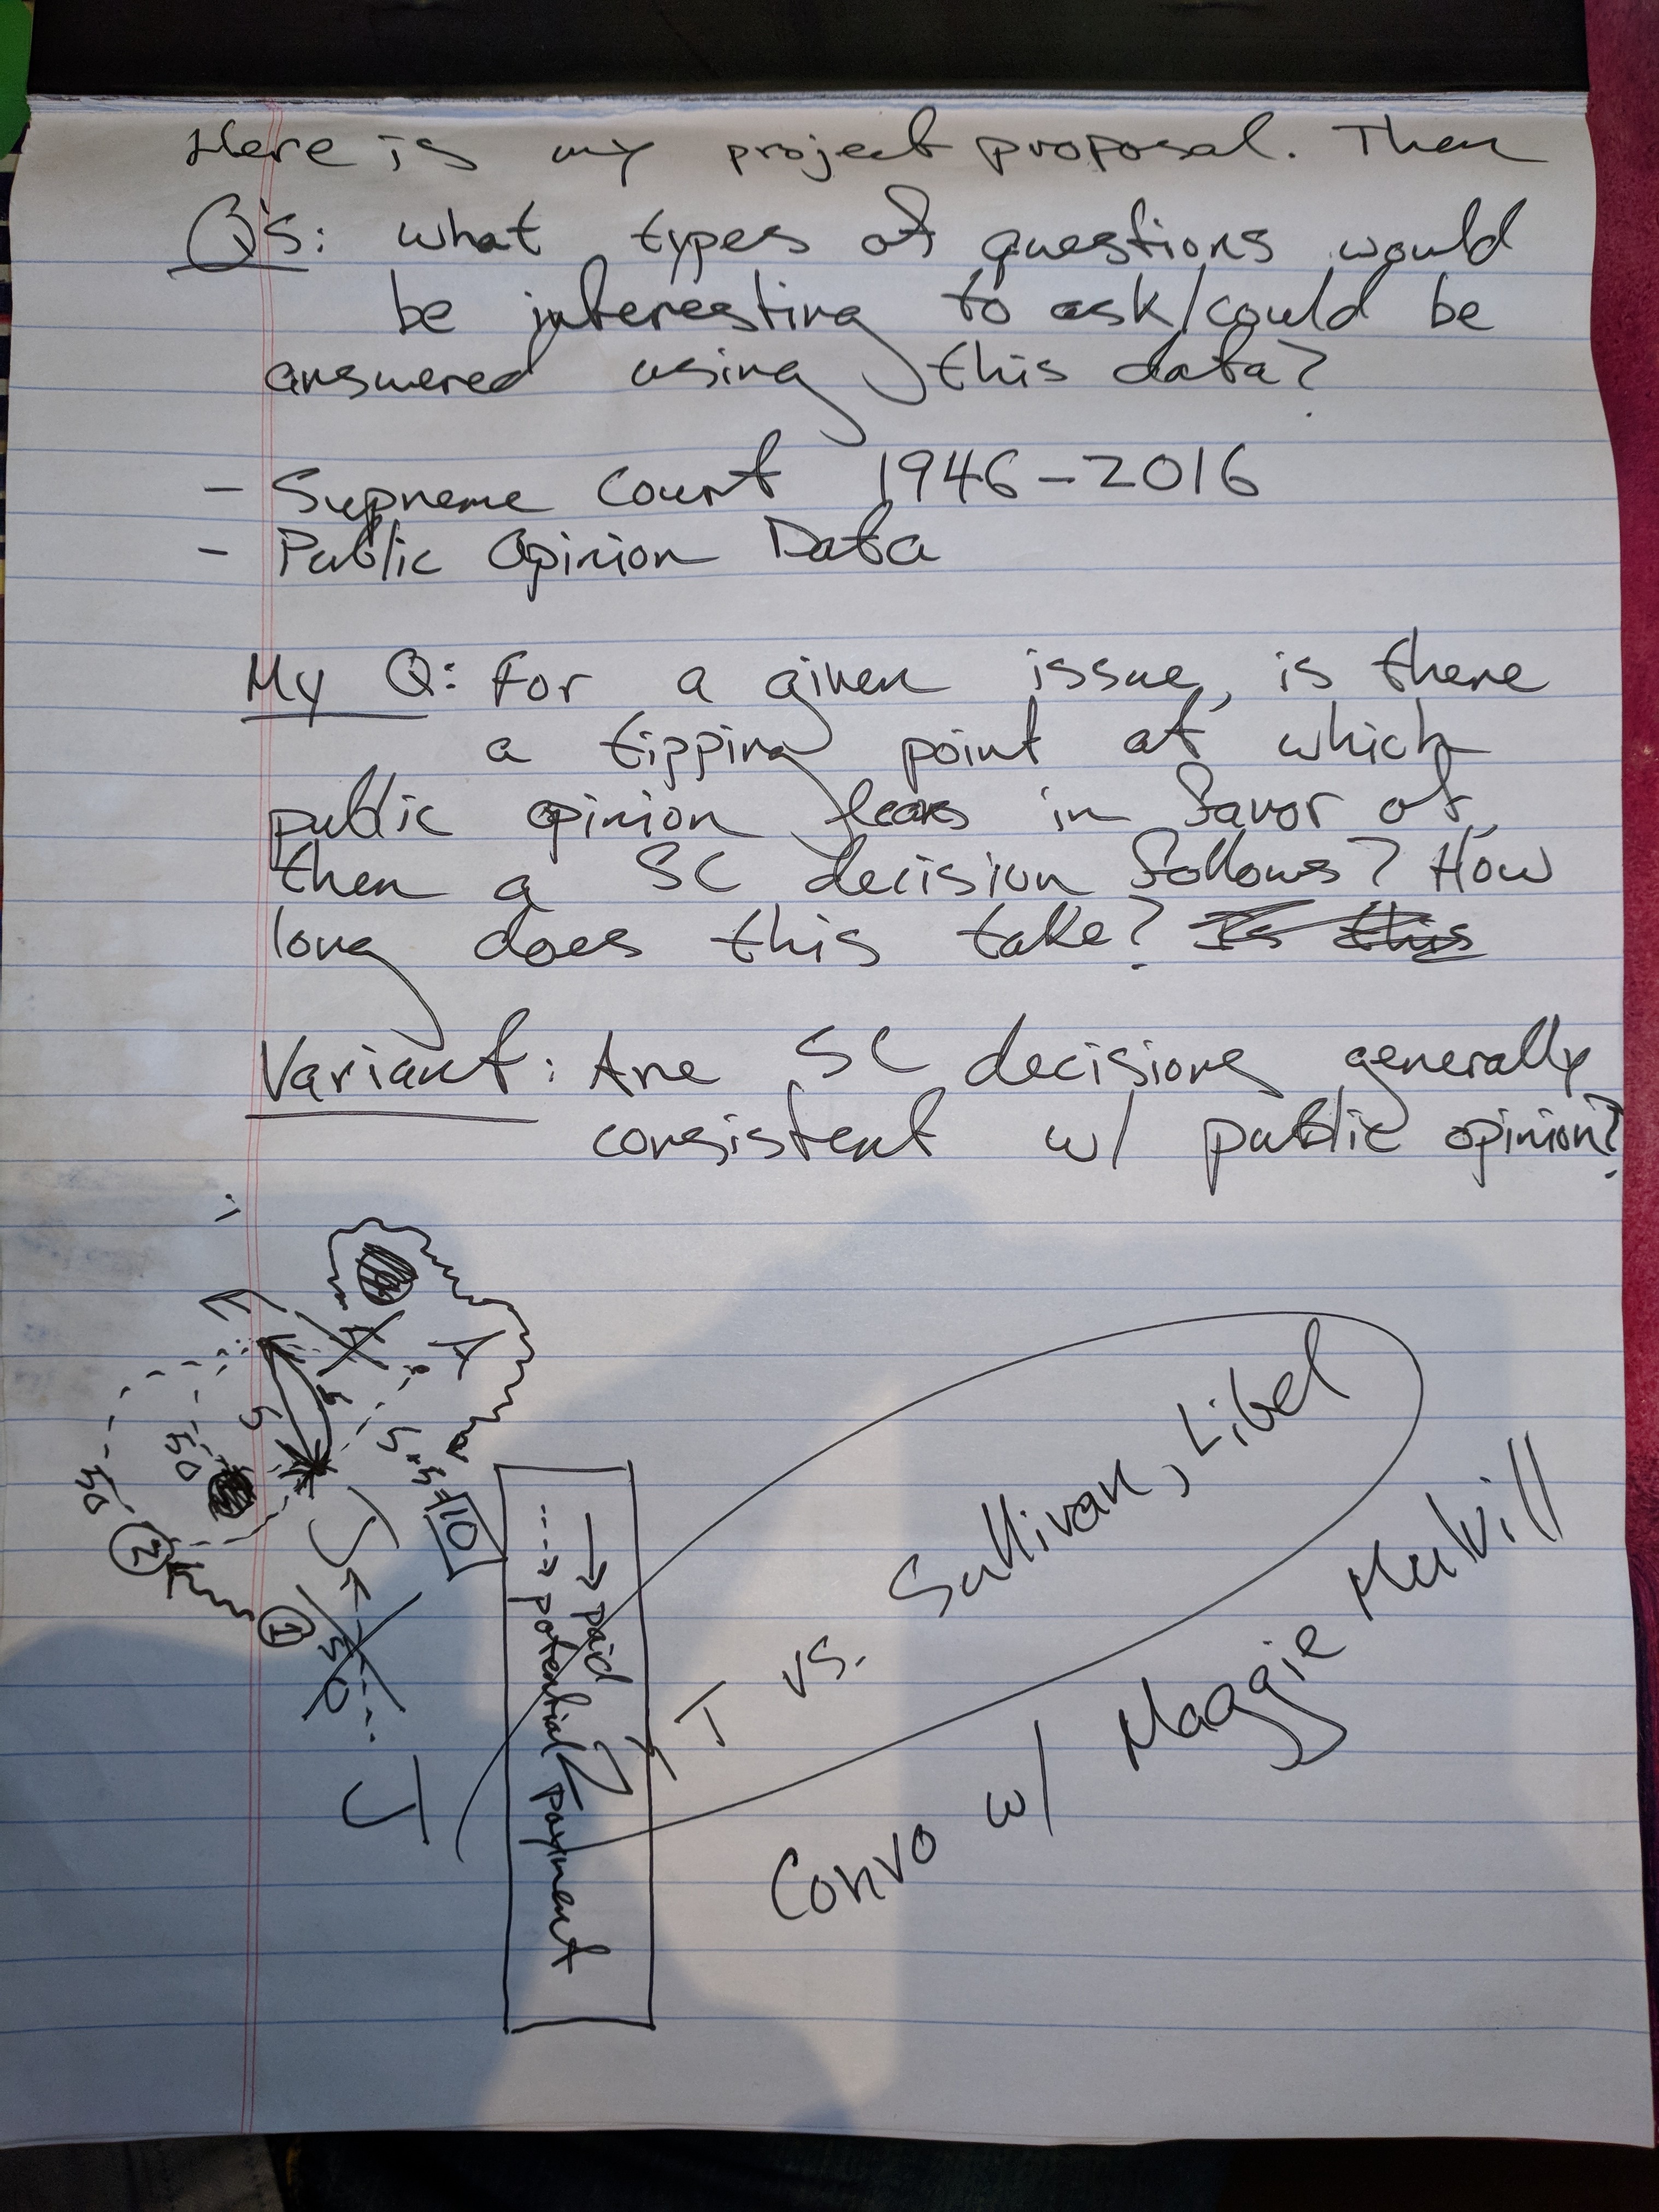 Here is my project proposal. Then
Q's: what types of questions would
be interesting to ask/could be
answered using this data?
- Supreme Court 1946-2016
- Public Opinion Data
My Q: For a given issue, is there
a tipping point at which
public opinion leans in favor of,
then a SC decision follows? How
long does this take? Is this
Variant: Are SC decisions generally
consistent w/ public opinion?
E
A
5
5
50
50
5+5=10
J
2
1
50
J
→ paid
---> potential payment
NYT vs. Sullivan, Libel
Convo w/ Maggie Mulvill